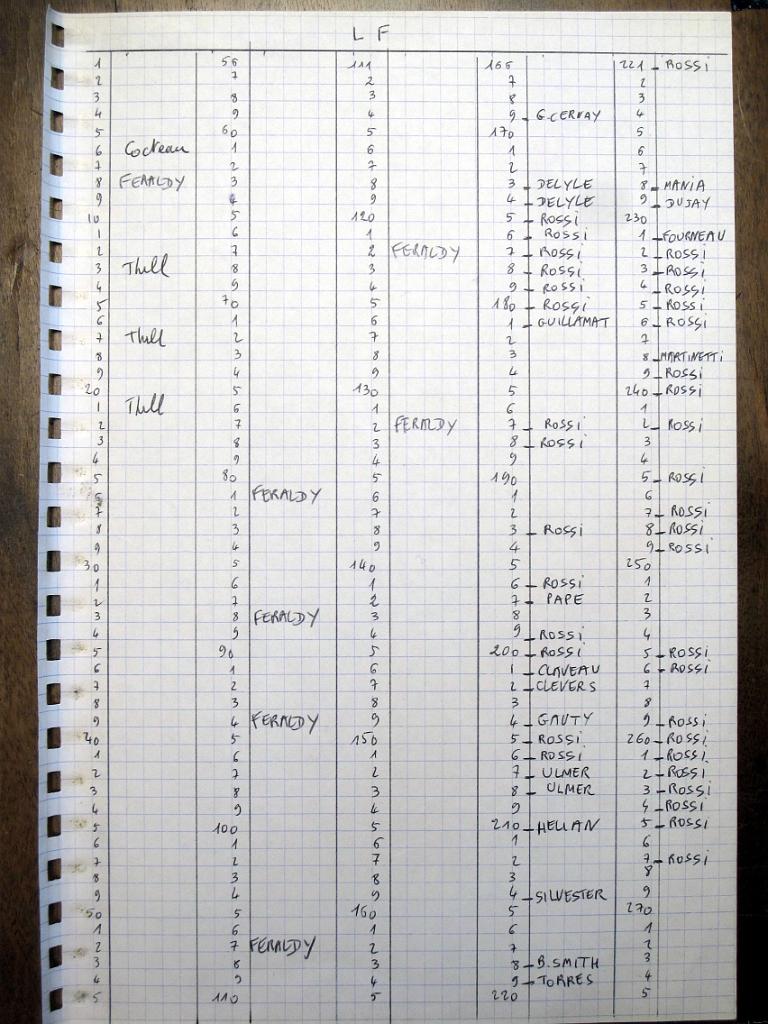 L F
1
2
3
4
5
6 Cocteau
7
8 FERALDY
9
10
1
2
3 Thill
4
5
6
7 Thill
8
9
20
1 Thill
2
3
4
5
6
7
8
9
30
1
2
3
4
5
6
7
8
9
40
1
2
3
4
5
6
7
8
9
50
1
2
3
4
5
56
7
8
9
60
1
2
3
4
5
6
7
8
9
70
1
2
3
4
5
6
7
8
9
80
1 FERALDY
2
3
4
5
6
7
8 FERALDY
9
90
1
2
3
4 FERALDY
5
6
7
8
9
100
1
2
3
4
5
6
7 FERALDY
8
9
110
111
2
3
4
5
6
7
8
9
120
1
2 FERALDY
3
4
5
6
7
8
9
130
1
2 FERALDY
3
4
5
6
7
8
9
140
1
2
3
4
5
6
7
8
9
150
1
2
3
4
5
6
7
8
9
160
1
2
3
4
5
166
7
8
9 - G.CERVAY
170
1
2
3 - DELYLE
4 - DELYLE
5 - ROSSi
6 - ROSSi
7 - ROSSi
8 - ROSSi
9 - ROSSi
180 - ROSSi
1 - GUILLAMAT
2
3
4
5
6
7 - ROSSi
8 - ROSSi
9
190
1
2
3 - ROSSi
4
5
6 - ROSSi
7 - PAPE
8
9 - ROSSi
200 - ROSSi
1 - CLAVEAU
2 - CLEVERS
3
4 - GAUTY
5 - ROSSi
6 - ROSSi
7 - ULMER
8 - ULMER
9
210 - HELIAN
1
2
3
4 - SILVESTER
5
6
7
8 - B.SMITH
9 - TORRES
220
221 - ROSSi
2
3
4
5
6
7
8 - MANiA
9 - DUJAY
230
1 - FOURNEAU
2 - ROSSi
3 - ROSSi
4 - ROSSi
5 - ROSSi
6 - ROSSi
7
8 - MARTINETTi
9 - ROSSi
240 - ROSSi
1
2 - ROSSi
3
4
5 - ROSSi
6
7 - ROSSi
8 - ROSSi
9 - ROSSi
250
1
2
3
4
5 - ROSSi
6 - ROSSi
7
8
9 - ROSSi
260 - ROSSi
1 - ROSSi
2 - ROSSi
3 - ROSSi
4 - ROSSi
5 - ROSSi
6
7 - ROSSi
8
9
270
1
2
3
4
5